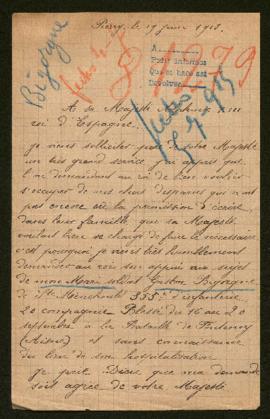 Pierry, le 19 juin 1915.
Bigorgne
8 1279
A sa Majesté Alphonse XIII
roi d'Espagne.
Je viens solliciter près de votre Majesté
un très grand service, j'ai appris que
l'on demandant au roi de bien vouloir
s'occuper de nos chers disparus qui n'ont
pas encore eu la permission d'écrire
dans leur famille que sa Majesté
voulait bien se charger de faire le nécessaire
c'est pourquoi je viens très humblement
demander au roi son appui au sujet
de mon Mari soldat Gaston Bigorgne
de Ste Menehould 355e d'infanterie
20 compagnie Blessé du 16 au 20
septembre à la Bataille de
(Aisne) et sans connaissance
du lieu de son hospitalisation
Je prie Dieu que ma demande
soit agréée de votre Majesté